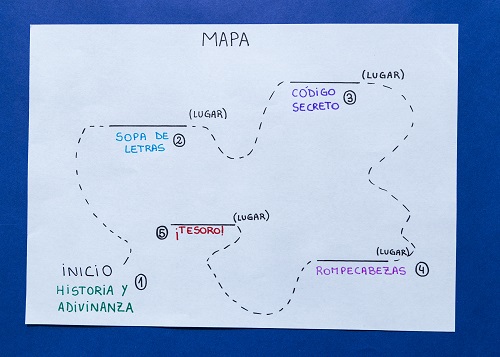 MAPA
(LUGAR)
CÓDIGO
SECRETO 3
(LUGAR)
SOPA DE
LETRAS 2
(LUGAR)
5 ¡TESORO!
(LUGAR)
ROMPECABEZAS 4
INICIO 1
HISTORIA Y
ADIVINANZA